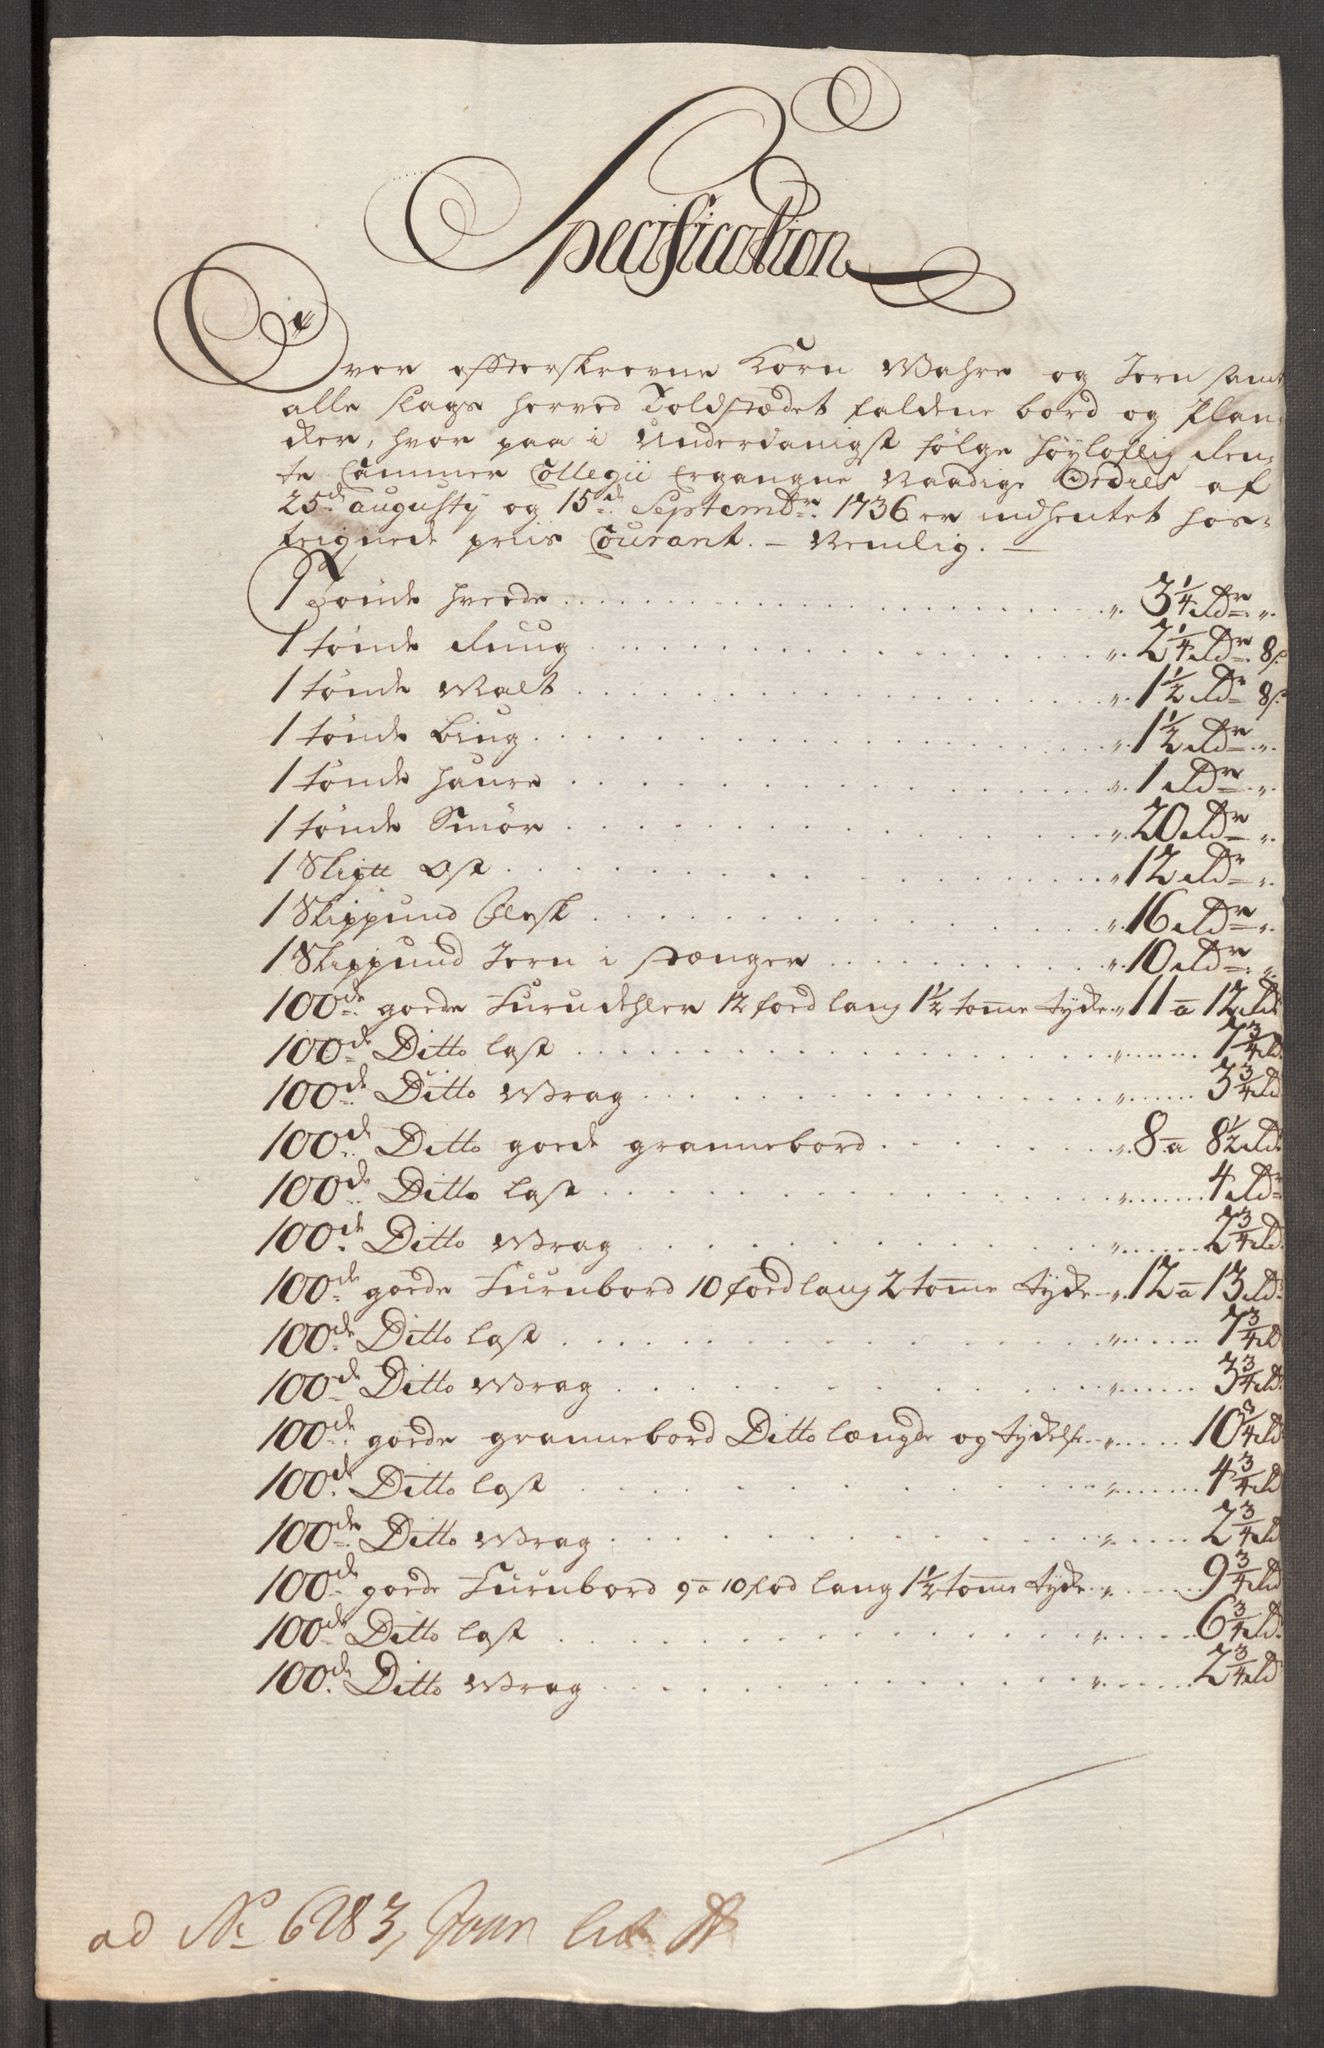 Specification
Over effterskrevne Korn Wahre og Jern samt
alle slags herved Toldstædet faldene bord og Plan-
cker, hvor paa i Underdanigst følge Høyloflig Ren-
te Cammer Collegii Ergangne Naadige Ordres af
25de augusty og 15de Septembr: 1736 er indhentet hos-
teignede priis Courant. – Nemlig. –
1 Tønde hvede . . . „ 3 1/4 Rdr „
1 tønde Ruug . . . „ 2 1/4 Rdr 8 s
1 tønde Malt . . . „ 1 1/2 Rdr 8 s
1 tønde Biug . . . „ 1 1/2 Rdr „
1 tønde haure . . . „ 1 Rdr „
1 tønde Smør . . . „ 20 Rdr „
1 Skip Ost . . . „ 12 Rdr „
1 Skippund Flesk . . . „ 16 Rdr „
1 Skippund Jern i stænger . . . „ 10 Rdr „
100de goede Furudehler 12 foed lang 1 1/2 tome tyde „ 11 a 12 Rdr
100de Ditto last . . . „ 7 3/4 Rd
100de Ditto Wrag . . . „ 3 3/4 Rd
100de Ditto goede grannebord . . . „ 8 a 8 1/2 Rd
100de Ditto last . . . „ 4 Rdr
100de Ditto Wrag . . . „ 2 3/4 Rd
100de goede Furubord 10 foed lang 2 tome tyde „ 12 a 13 Rd
100de Ditto last . . . „ 7 3/4 Rd
100de Ditto Wrag . . . „ 3 3/4 Rd
100de goede grannebord Ditto længde og tydelse „ 10 3/4 Rd
100de Ditto last . . . „ 4 3/4 Rd
100de Ditto Wrag . . . „ 2 3/4 Rd
100de goede Furubord 9 a 10 fod lang 1 1/2 tome tyde „ 9 3/4 Rd
100de Ditto last . . . „ 6 3/4 Rd
100de Ditto Wrag . . . „ 2 3/4 Rd
ad No 6283, Jour lit